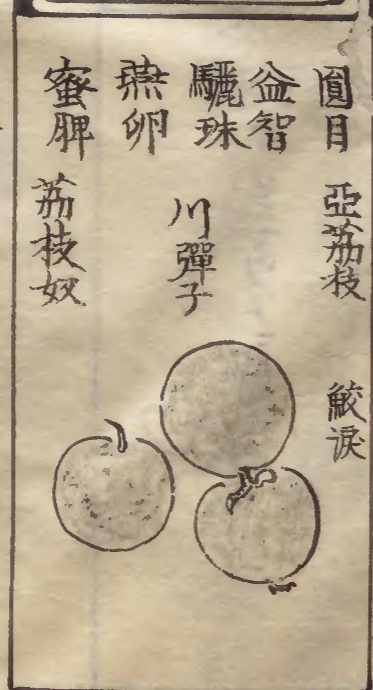 圓目 亞荔枝 鮫淚
益智
驪珠 川彈子
燕卵
蜜脾 荔枝奴